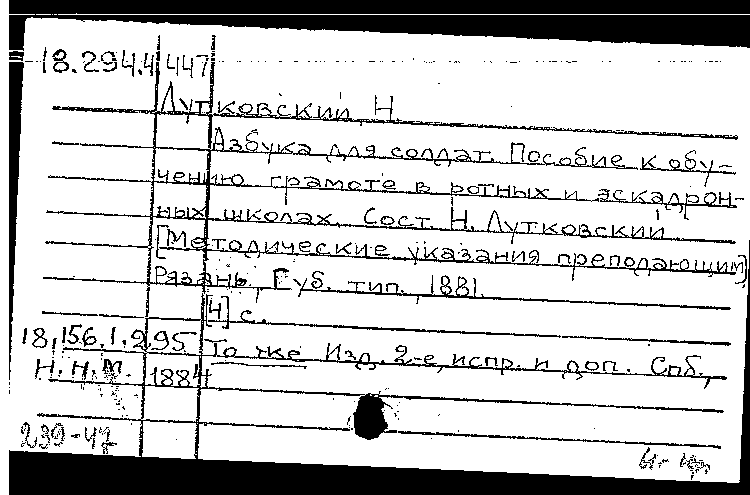 18.294.4.447
Лутковский, Н.
Азбука для солдат. Пособие к обу-
чению грамоте в ротных и эскадрон-
ных школах. Сост. Н. Лутковский
[Методические указания преподающим]
Рязань, Губ. тип., 1881.
[4] с.
18.156.1.295 То же Изд. 2-е, испр. и доп. Спб.,
Н.Н.М. 1884
239-47